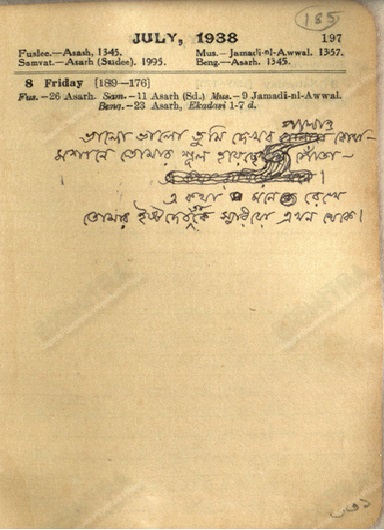 185
JULY, 1938 197
Fuslee.—Asash, 1345. Mus.—Jamadi-nl-Awwal. 1357.
Samvat.—Asarh (Saidee). 1995. Beng.—Asarh. 1345.
8 Friday [189—176]
Fus.—26 Asarh. Sam.—11 Asarh (Sd.) Mus.—9 Jamadii-nl-Awwal.
Beng.—23 Asarh, Ekadari 1-7 d.
ভালো ভালো তুমি দেখব পালাও
তোমার শূল হয়েছে পোঁতা—
এ কথা মনে রেখে
তোমার ইষ্টদেবকে স্মরিয়ো এখন থেকে।